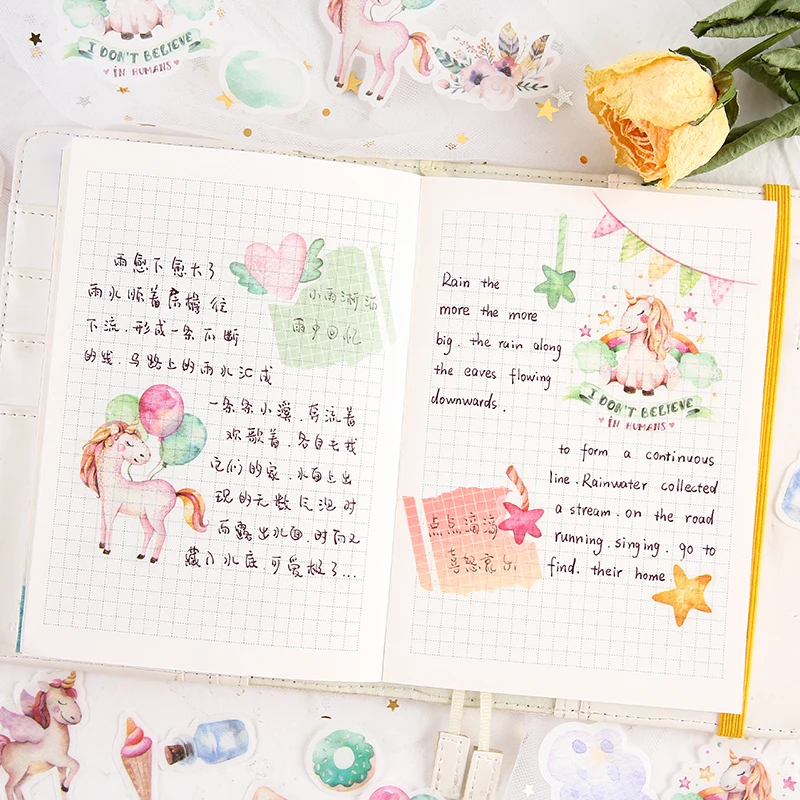 I DON'T BELIEVE
IN HUMANS
雨愈下愈大了
雨水顺着房檐往
下流.形成一条不断
的线.马路上的雨水汇成
一条条小溪.奔流着
欢歌着.各自去找
它们的家.水面上出
现的无数气泡时
而露出水面.时而又
藏入水底.可爱极了...
小雨淅沥
雨中回忆
Rain the
more the more
big. the rain along
the eaves flowing
downwards.
I DON'T BELIEVE
IN HUMANS
to form a continuous
line. Rainwater collected
a stream. on the road
running. singing. go to
find. their home.
点点滴滴
喜怒哀乐